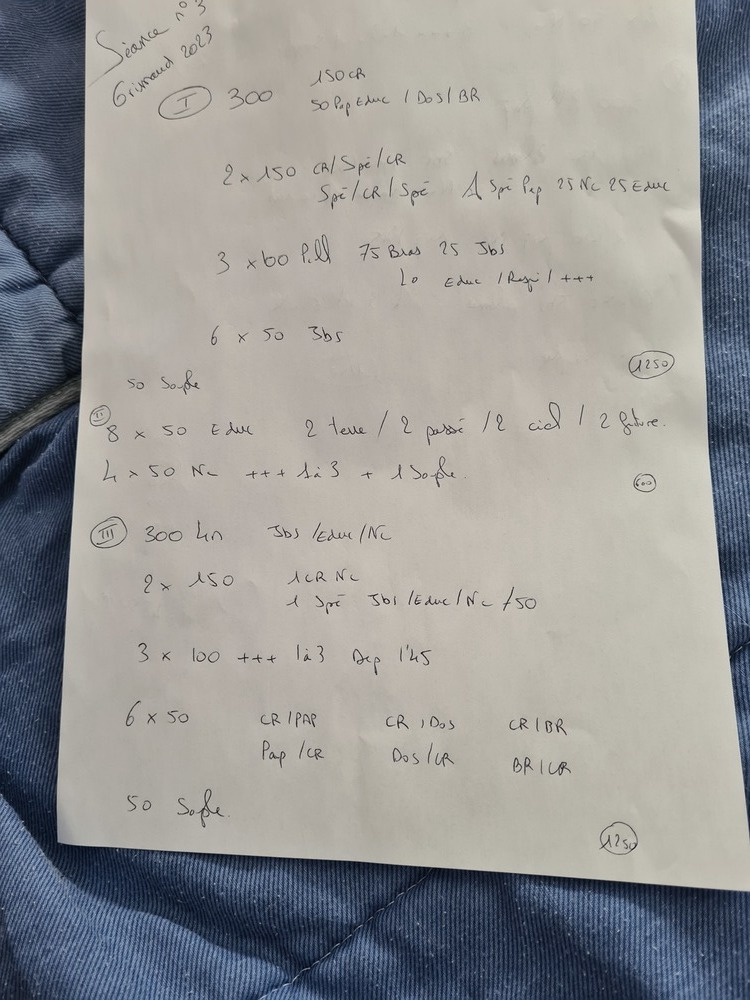 Séance n°3
Grimaud 2023
I 300 150 CR
50 Pap Educ / Dos / BR
2 x 150 CR / Spé / CR
Spé / CR / Spé 1 Spé Pap 25 Nc 25 Educ
3 x 100 Pull 75 Bras 25 Jbs
Educ / Respi / +++
6 x 50 Jbs
1250
50 Souple
II
8 x 50 Educ 2 terre / 2 passé / 2 ciel / 2 future.
4 x 50 Nc +++ 1 à 3 + 1 Souple.
600
III 300 4n Jbs / Educ / Nc
2 x 150 1 CR Nc
1 Spé Jbs / Educ / Nc /50
3 x 100 +++ 1 à 3 Dep 1'45
6 x 50 CR / PAP CR / Dos CR / BR
Pap / CR Dos / CR BR / CR
50 Souple.
1250